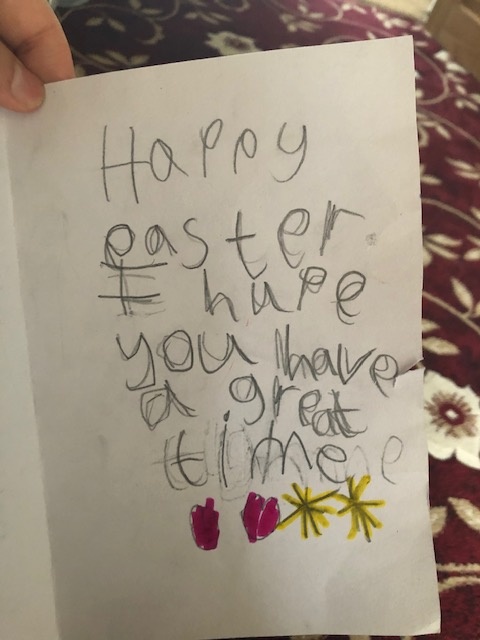 Happy
easter.
I hupe
you have
a great
time